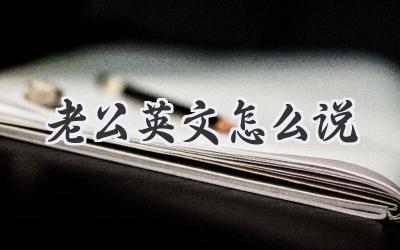 老公英文怎么说